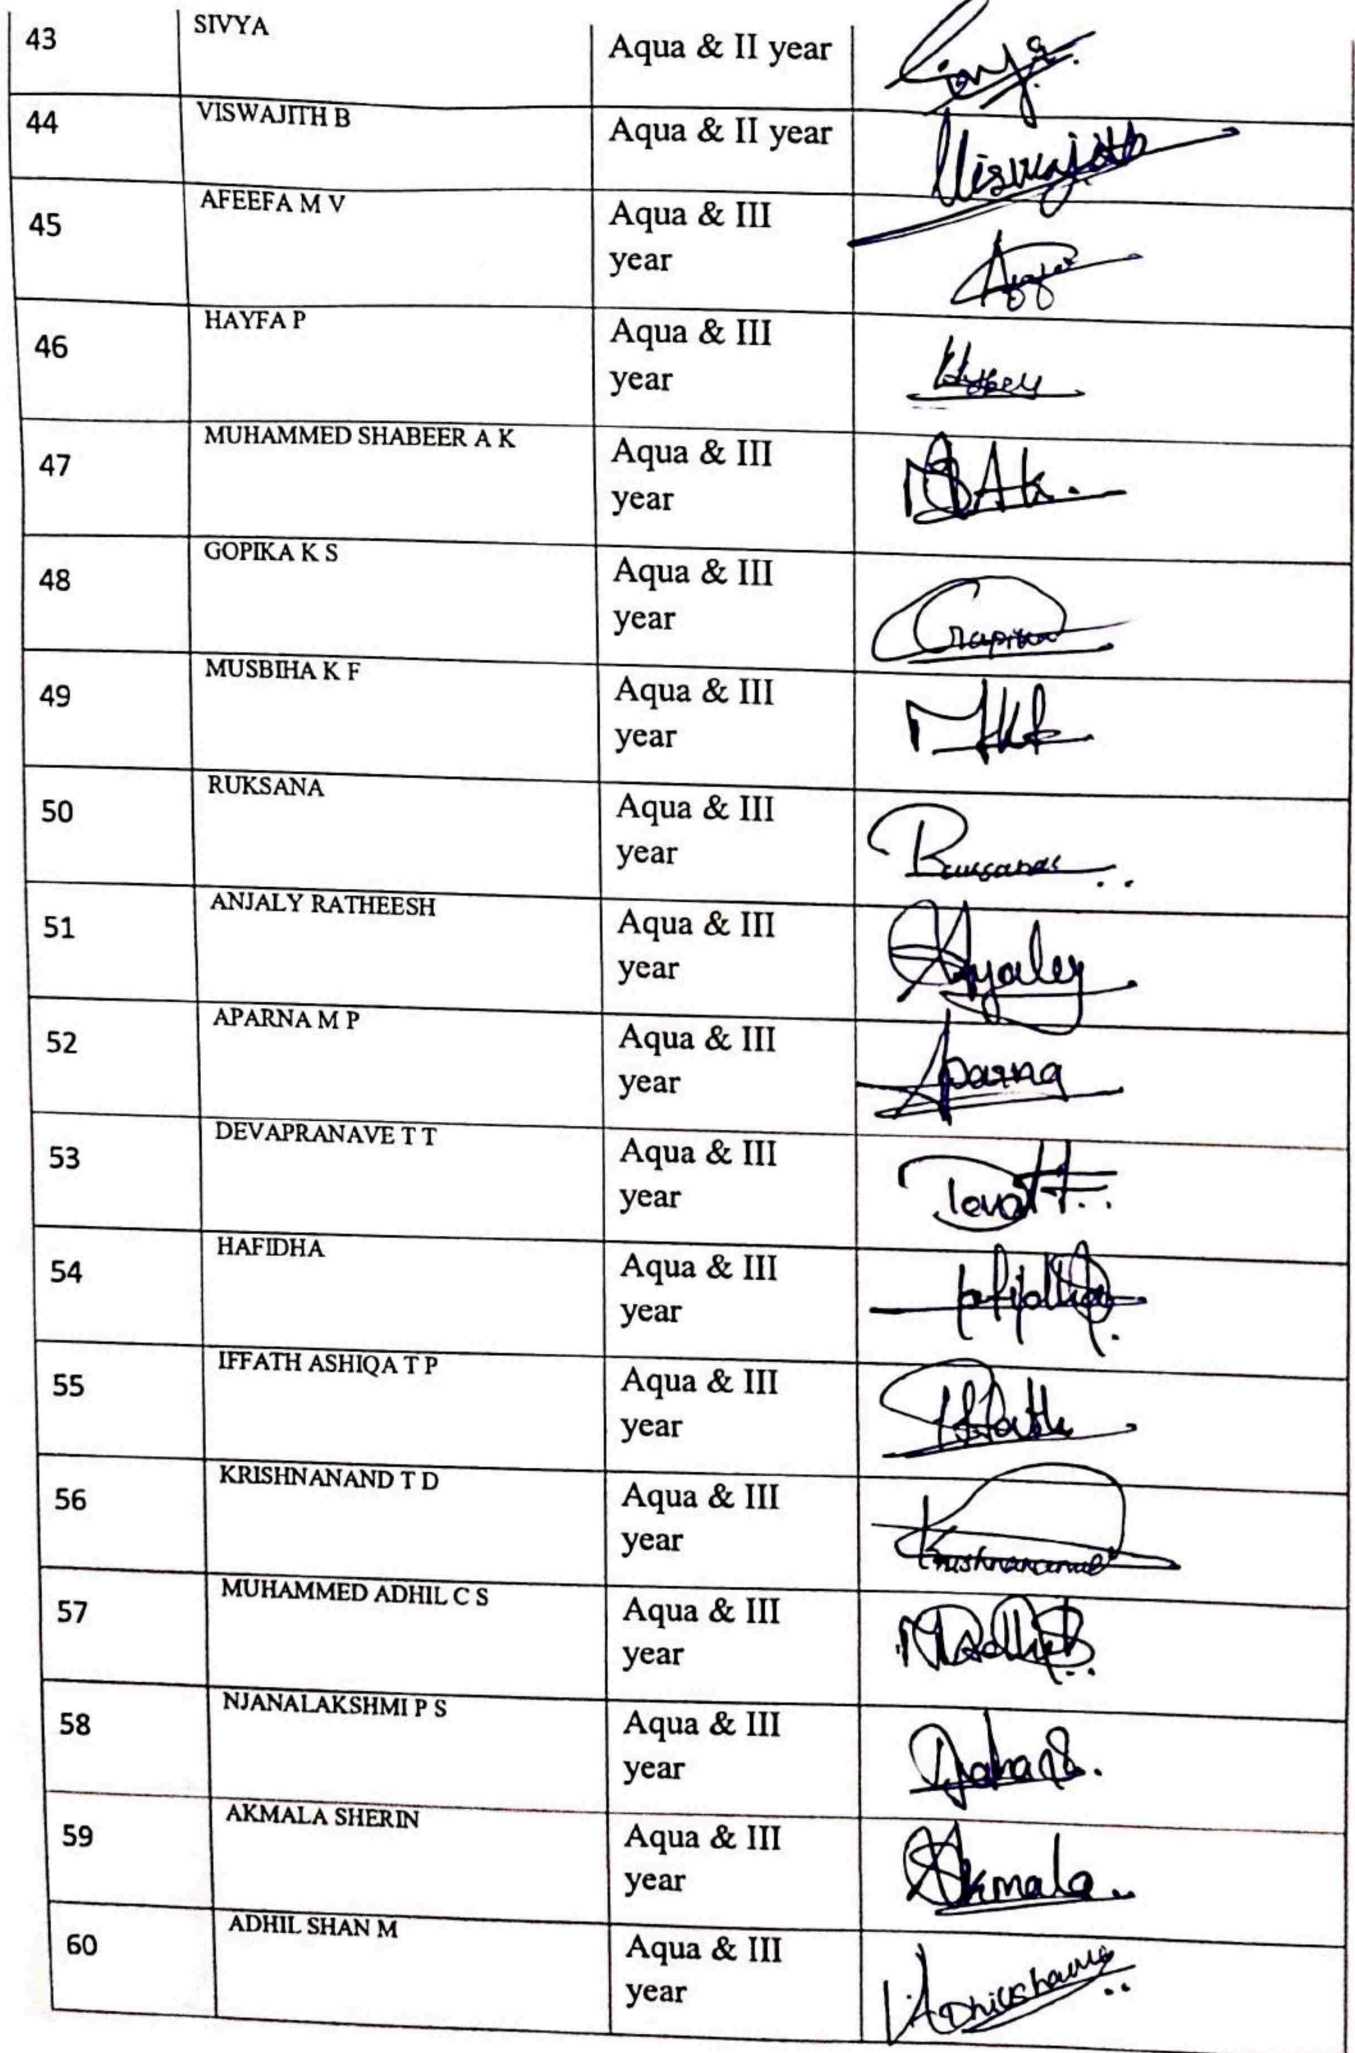 43 SIVYA Aqua & II year
44 VISWAJITH B Aqua & II year Viswajith
45 AFEEFA M V Aqua & III
year
46 HAYFA P Aqua & III
year
47 MUHAMMED SHABEER A K Aqua & III
year
48 GOPIKA K S Aqua & III
year
49 MUSBIHA K F Aqua & III
year
50 RUKSANA Aqua & III
year
51 ANJALY RATHEESH Aqua & III
year
52 APARNA M P Aqua & III
year Aparna
53 DEVAPRANAVE T T Aqua & III
year
54 HAFIDHA Aqua & III
year
55 IFFATH ASHIQA T P Aqua & III
year
56 KRISHNANAND T D Aqua & III
year Krishnanand
57 MUHAMMED ADHIL C S Aqua & III
year
58 NJANALAKSHMI P S Aqua & III
year
59 AKMALA SHERIN Aqua & III
year Akmala
60 ADHIL SHAN M Aqua & III
year